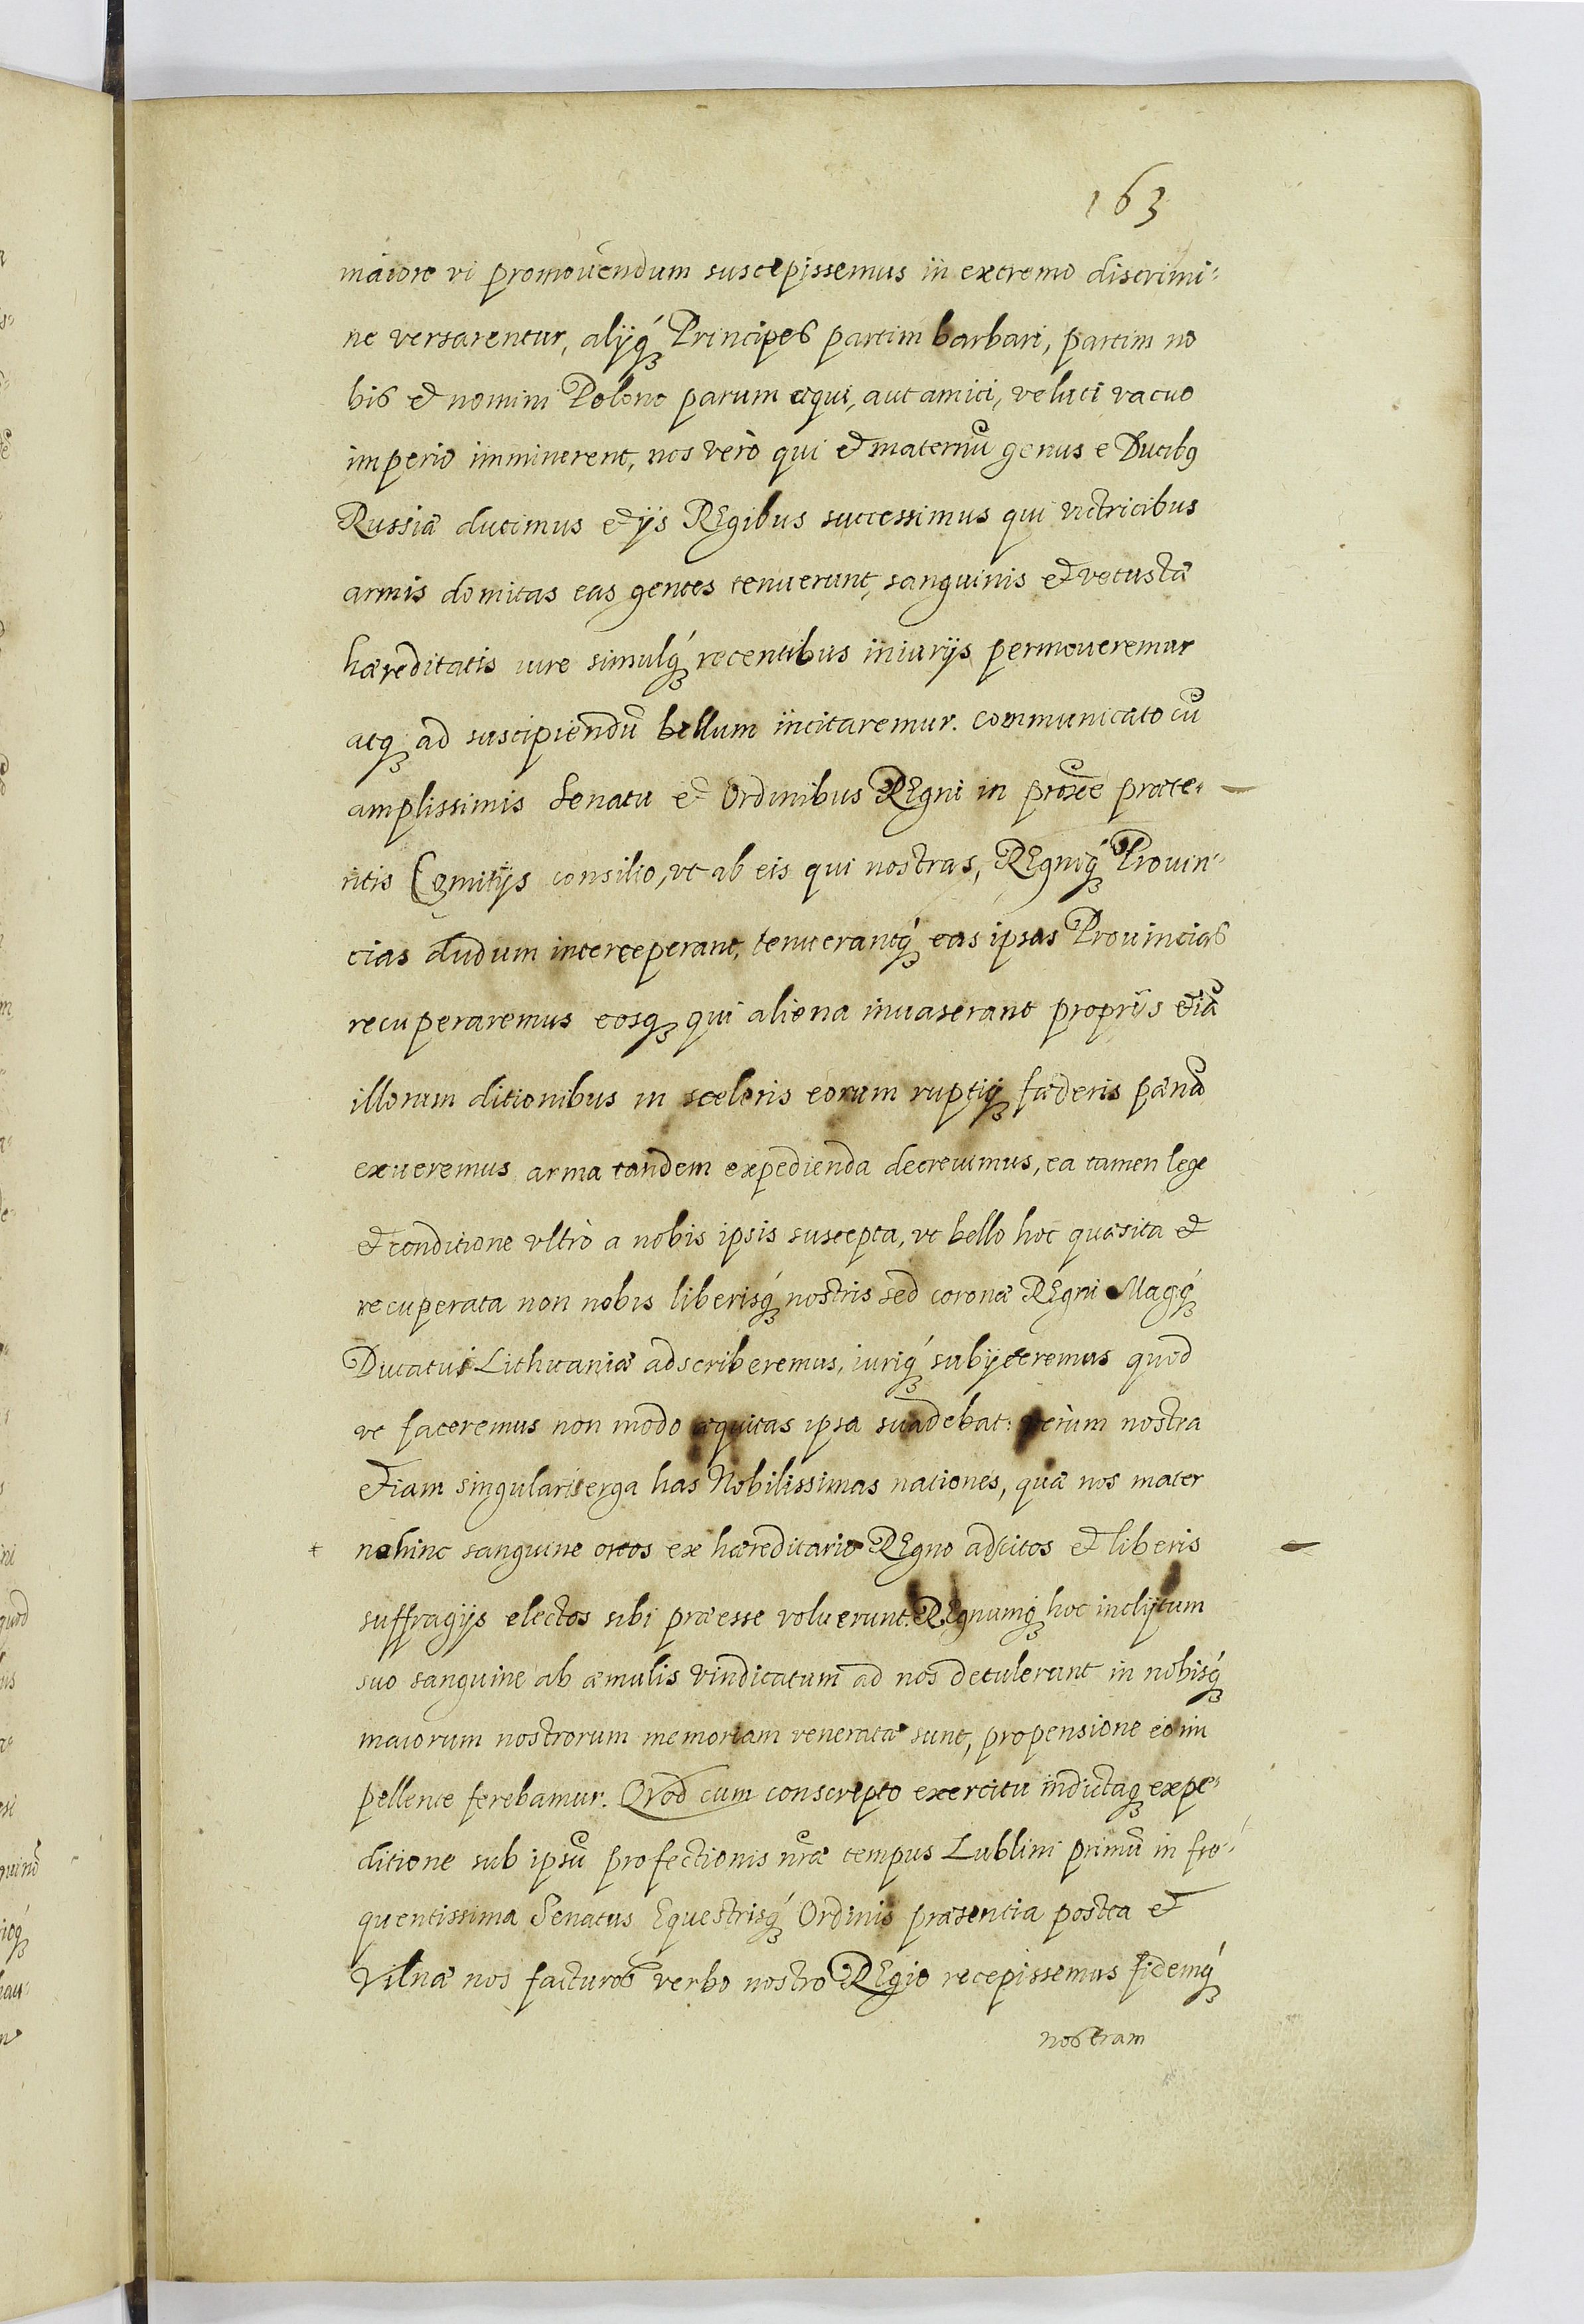 163
maiore vi promouendum suscepissemus in extremo discrimi-
ne versarentur, alijq́ Principes partim barbari, partim no
bis et nomini Polono parum æqui, aut amici, veluti vacuo
imperio imminerent, nos verò qui et maternũ genus e Ducibꝰ
Russiæ ducimus et ijs REgibus successimus qui victricibus
armis domitas eas gentes tenuerunt, sanguinis et vetustæ
hæreditatis iure simulq́ recentibus iniurijs permoueremur
atq ad suscipiendũ bellum incitaremur. communicato cũ
amplissimis Senatu et Ordinibus REgni in proxẽ præte-
ritis Comitijs consilio, vt ab eis qui nostras, REgniq́ Prouin-
cias dudum interceperant, tenuerantq́ eas ipsas Prouincias
recuperaremus eosq qui aliena inuaserant proprijs etiã
illorum ditionibus in sceleris eorum ruptiq́ fæderis pænã
exueremus arma tandem expedienda decreuimus, ea tamen lege
et conditione vltrò a nobis ipsis suscepta, vt bello hoc quæsita et
recuperata non nobis liberisq́ nostris sed coronæ REgni Magq́
Ducatui Lithuaniæ adscriberemus, iuriq́ subijceremus quod
vt faceremus non modo æquitas ipsa suadebat: verùm nostra
etiam singularis erga has Nobilissimas nationes, quæ nos mater
no hinc sanguine ortos ex hæreditario REgno adscitos et liberis
suffragijs electos sibi præesse voluerunt. REgnumq́ hoc inclytum
suo sanguine ab æmulis vindicatum ad nos detulerunt in nobisq́
maiorum nostrorum memoriam veneratæ sunt, propensione eo im
pellente ferebamur. Quod cum conscripto exercitu indictaq expe-
ditione sub ipsũ profectionis nr̃æ tempus Lublini primũ in fre-
quentissima Senatus Equestrisq́ Ordinis præsentia postea et
Vilnæ nos facturos verbo nostro REgio recepissemus fidemq́
nostram